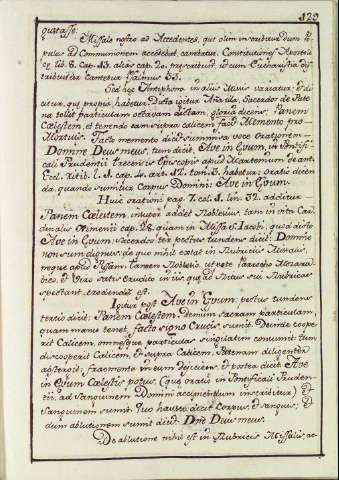 129
quatasse.
Missale nostro ad Accedentes, qui olim in cum
populus ad Communionem accedebat, cantatur. Constitutiones Apostoli
cę lib. 8. cap. 13. aliàs cap. 20. prescribunt, ut cum Eucharistia dis
tribuitur cantetur Psalmus 33.
Sed hęc Antiphona in aliis Missis variatur, & di
citur, quę propia habetur. Dicta igitur Aña illa, Sacerdos de Pate
na tollit particulam octavam dictam, gloria dicens: Panem
Cœlestem, et tenendo eam supra calicem facit Memento pro
Mortuis. Facto memento dicit summissa voce Orationem
Domine Deus meus, tum dicit, Ave in Ęvum, in Pontifi
cali Prudentii Trecensis Episcopi apud Martenium de ant.
Eccl. ritib. l. 1. cap. 4. art. 12. tom. 3. habetur: oratio dicen
da, quando sumitur Corpus Domini: Ave in Ęvum.
Huic orationi pag. 7. col. 1. lin. 32. additur
Panem Cœlestem, inquit Roblesius, tam in vita Car
dinalis Ximenii cap. 28. quam in Missa S. Iacobi, quod dicto
Ave in Ęvum, Sacerdos ter pectus tundens dicit: Domine
non sum dignus, de quo nihil extat in Rubricis Missalis,
neque apud Pisam. Tamen Roblesio, ut pote Parocho Mozara
bico, & Viro satis erudito in iis, quę ad Ritus sui Rubricas
spectant, credendum est.
Igitur post Ave in Ęvum, pectus tundens
tertio dicit: Panem Cœlestem. Demum sacram particulam,
quam manu tenet, facto signo Crucis, sumit. Deinde coope
rit Calicem, omnesque particulas singulatim consumit: tum
discooperit Calicem, & supra Calicem, Patenam diligenter
abstergit, fragmenta in eum dejiciens, & postea dicit Ave
in Ęvum Cœlestis potus (quę oratio in Pontificali Pruden
tii, ad Sanguinem Domini accipiendum inscribitur) &
Sanguinem sumit. Quo hausto dicit Corpus, & sanguis, &
dum ablutionem sumit dicit Dñe Deus meus.
De ablutione nihil est in Rubricis Missalis, ac